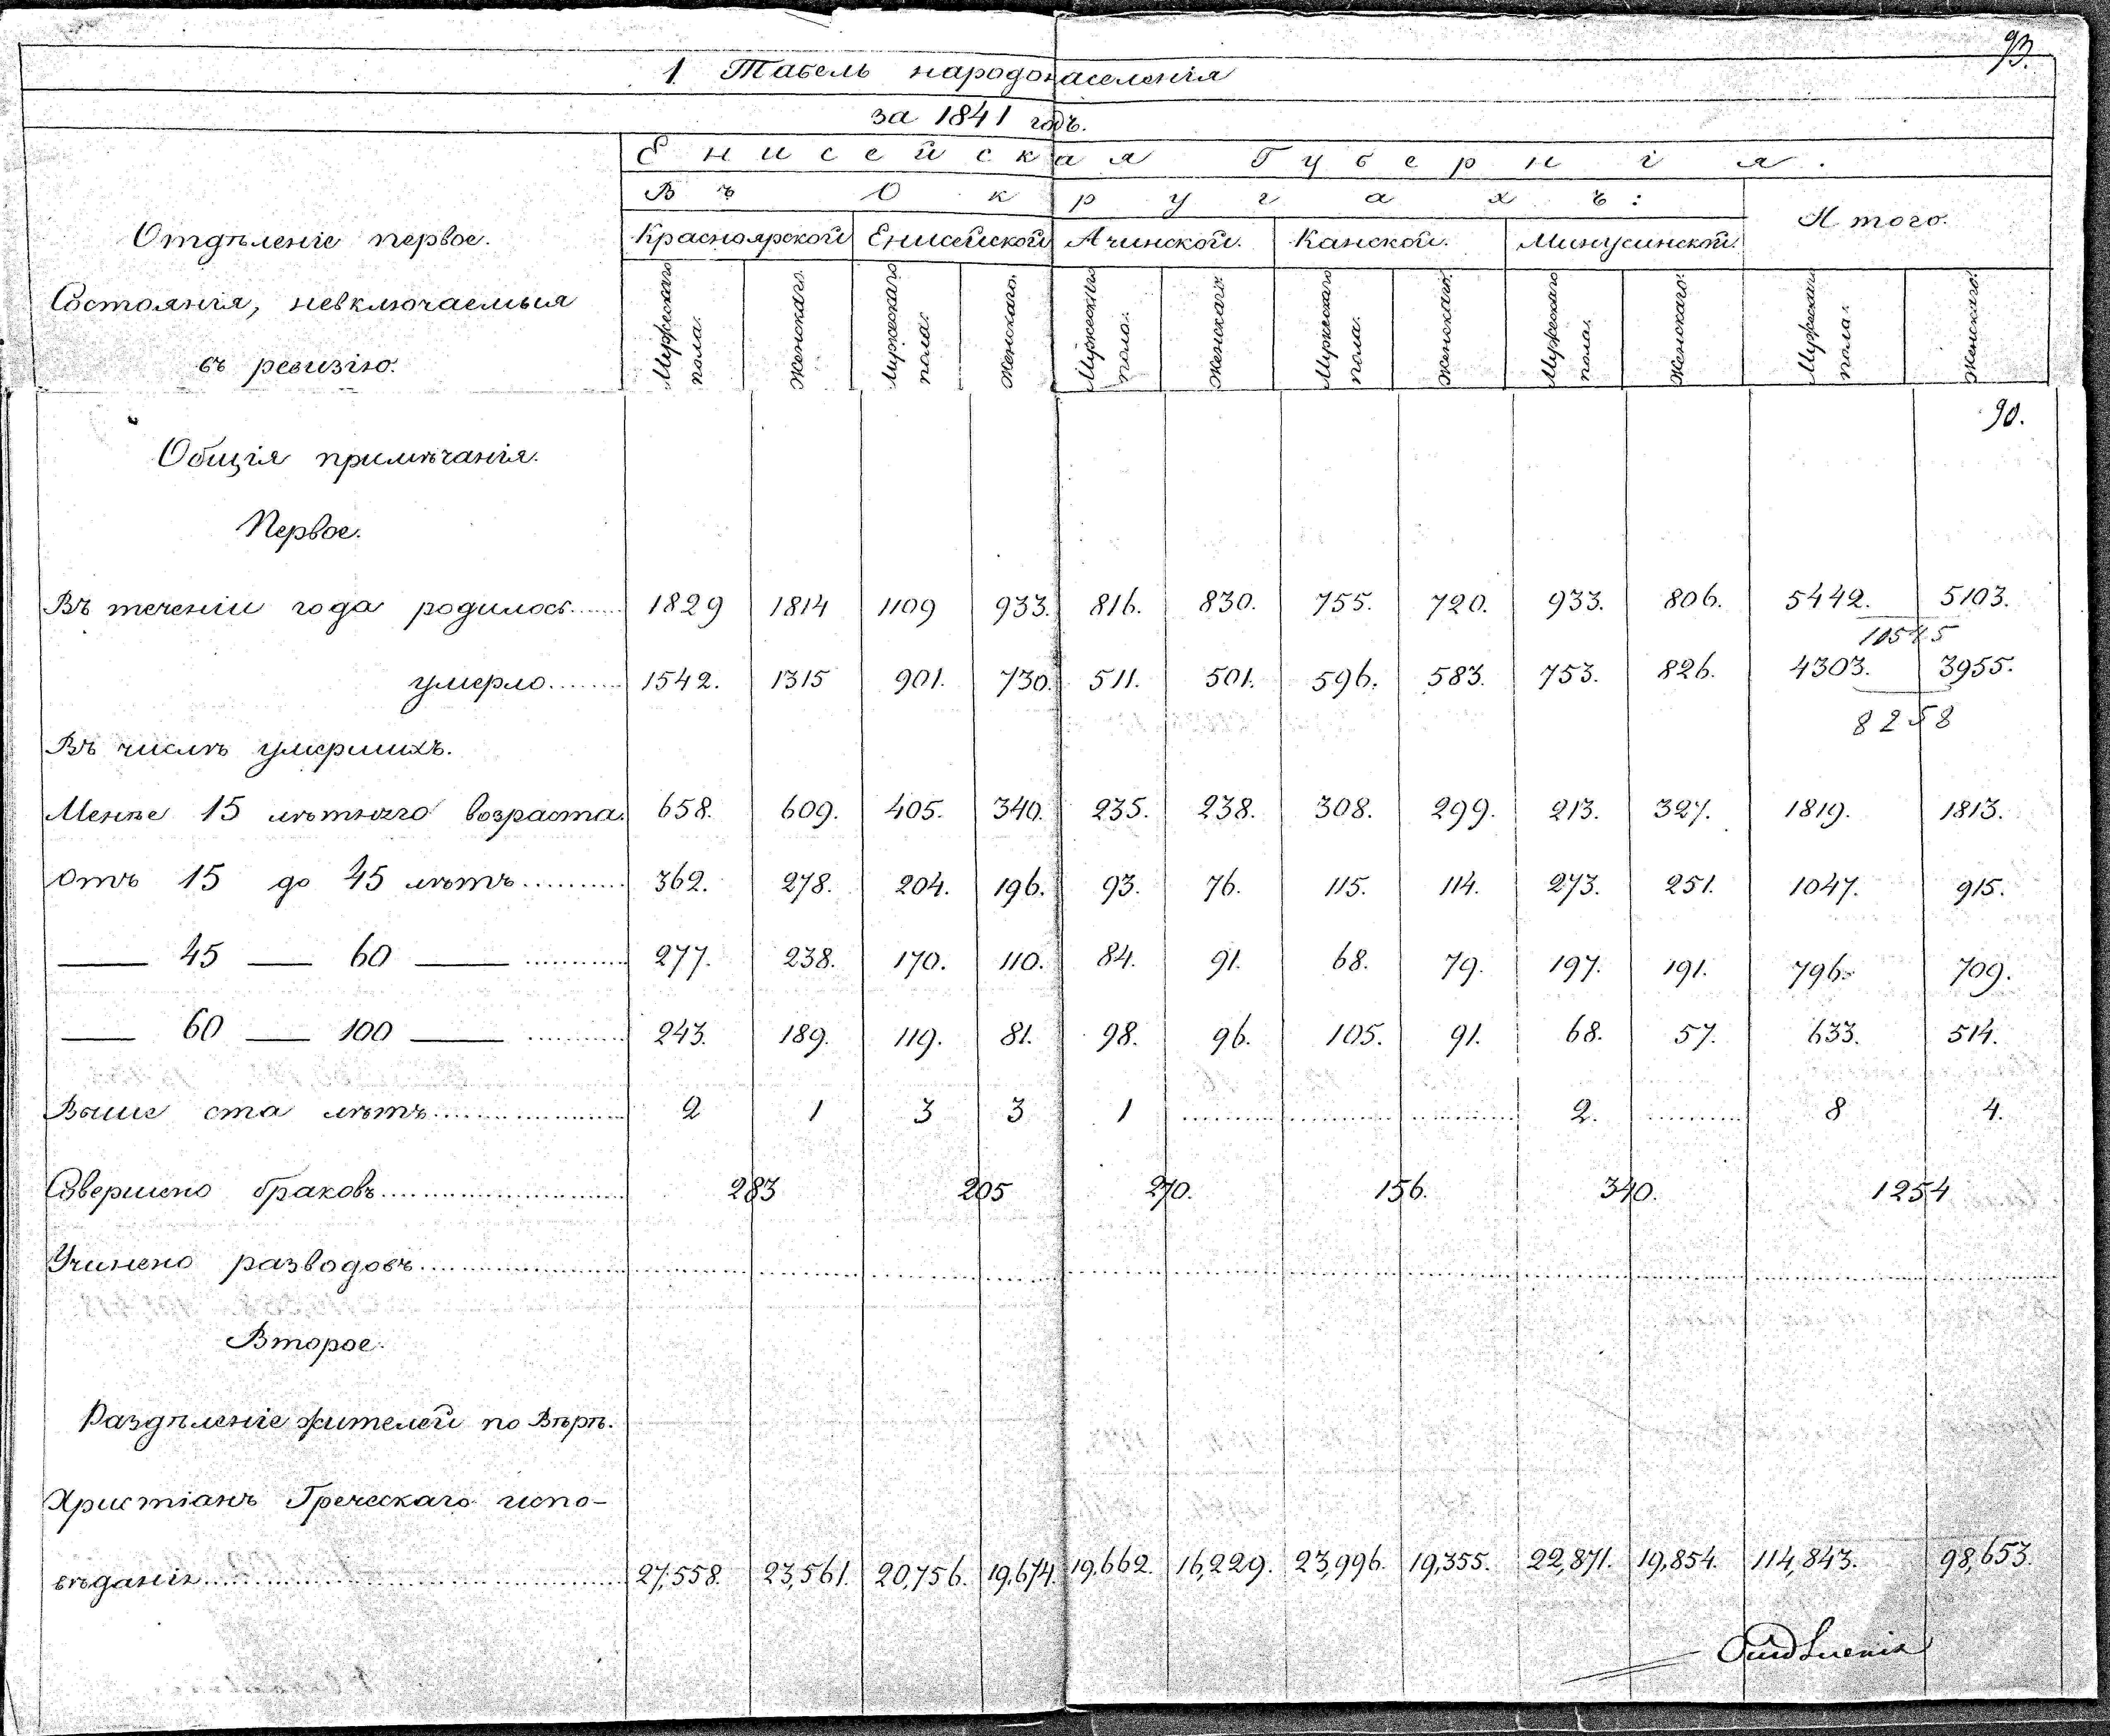 93.
1. Табель народонаселенія
за 1841 годъ.
Енисейская Губернія.
Въ Округахъ:
Отдѣленіе первое.
Состоянія, невключаемыя
въ ревизію.
Красноярской Енисейской Ачинской. Канской. Минусинской. Итого.
Мужескаго пола. Женскаго. Мужескаго пола. Женскаго. Мужескаго пола. Женскаго. Мужескаго пола. Женскаго. Мужескаго пола. Женскаго. Мужескаго пола. Женскаго.
90.
Общія примѣчанія.
Первое.
Въ теченіи года родилось 1829 1814 1109 933. 816. 830. 755. 720. 933. 806. 5442. 5103.
10545
умерло 1542. 1315 901. 730. 511. 501. 596. 583. 753. 826. 4303. 3955.
8258
Въ числѣ умершихъ.
Менѣе 15 лѣтняго возраста. 658. 609. 405. 340. 235. 238. 308. 299. 213. 327. 1819. 1813.
Отъ 15 до 45 лѣтъ 362. 278. 204. 196. 93. 76. 115. 114. 273. 251. 1047. 915.
— 45 — 60 — 277. 238. 170. 110. 84. 91. 68. 79. 197. 191. 796. 709.
— 60 — 100 — 243. 189. 119. 81. 98. 96. 105. 91. 68. 57. 633. 514.
Выше ста лѣтъ 2 1 3 3 1 2. 8 4.
Совершено браковъ 283 205 270. 156. 340. 1254
Учинено разводовъ
Второе.
Раздѣленіе жителей по Вѣрѣ.
Христіанъ Греческаго испо-
вѣданія 27,558. 23,561. 20,756. 19,674. 19,662. 16,229. 23,996. 19,355. 22,871. 19,854. 114,843. 98,653.